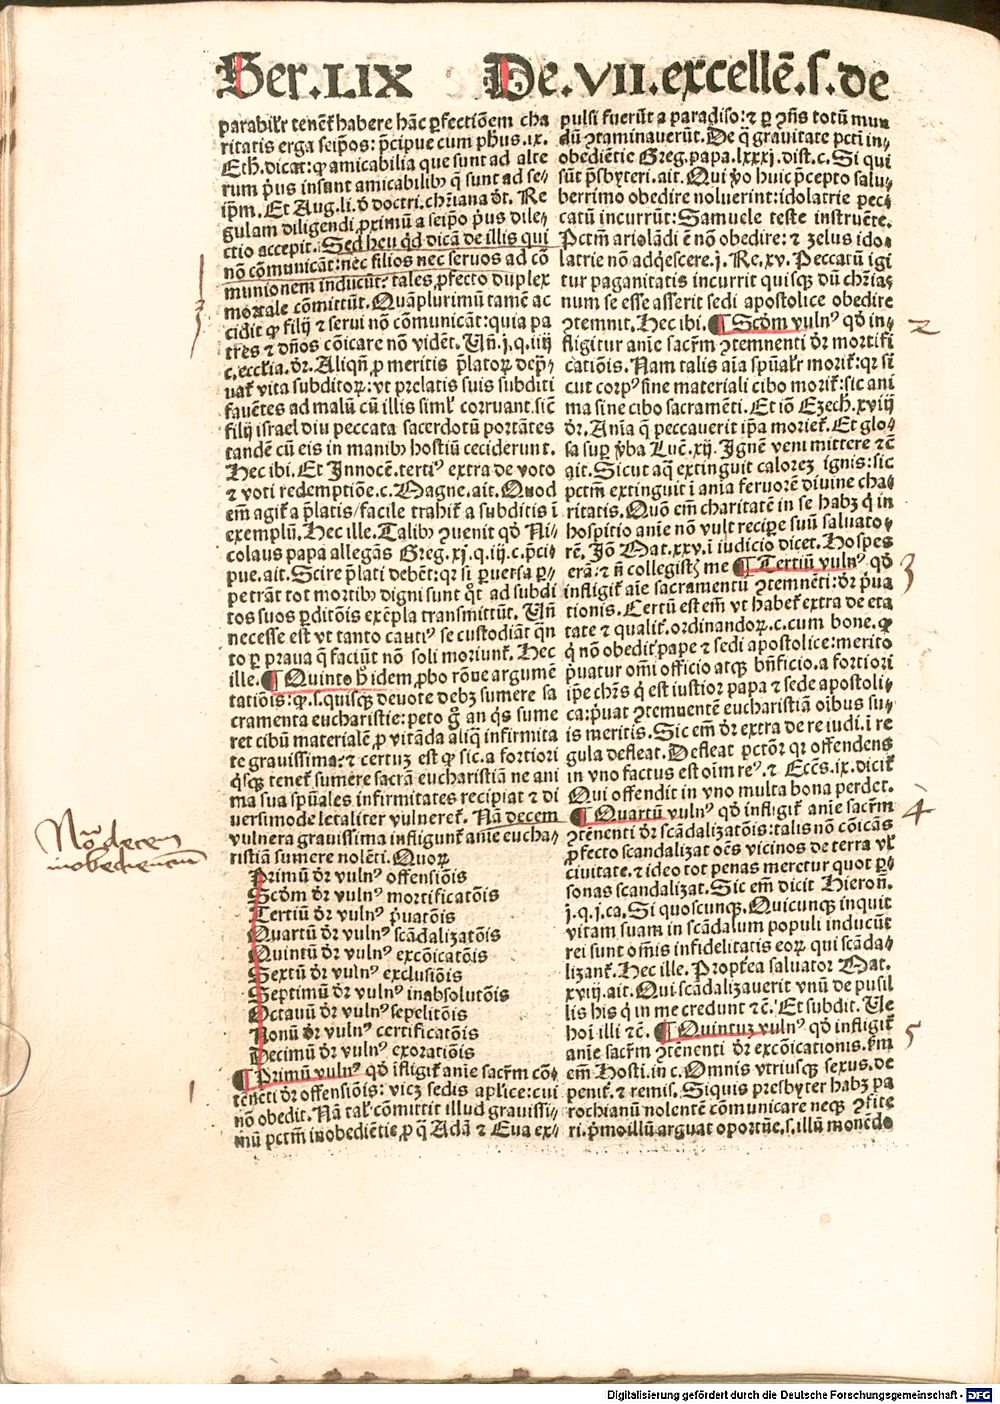 Ser.LIX De.VII.excellē.s.de
parabilr̄ tener̄ habere hāc ꝑfectiōem cha
ritatis erga seip̄os: p̄cipue cum ph̄us.ix.
Eth.dicat: ꝙ amicabilia que sunt ad alte
rum pͥus insunt amicabilibꝫ q̄ sunt ad se-
ip̄m. Et Aug.li.ð doctri.chr̄iana dt̄. Re
gulam diligendi ꝓximū a seip̄o pͥus dile-
ctio accepit. Sed heu qͥd dicā de illis qui
nō cōmunicāt: nec filios nec seruos ad cō
munionem inducūt: tales ꝓfecto duplex
mortale cōmittūt. Quāplurimū tamē ac
cidit ꝙ filij ⁊ serui nō cōmunicāt: quia pa
tres ⁊ dn̄os cōicare nō vidēt. Vn̄.j.q.iiij
c.eccl̄ia.dr̄. Aliqn̄ ꝓ meritis p̄latoꝝ dep̄-
uat̄ vita subditoꝝ: vt prelatis suis subditi
fauētes ad malū cū illis siml̓ corruant. sic̄
filij israel diu peccata sacerdotū portātes
tandē cū eis in manibꝫ hostiū ceciderunt.
Hec ibi. Et Innocē.tertiꝰ extra de voto
⁊ voti redemptiōe.c. Magne.ait. Quod
em̄ agit̄ a p̄latis/facile trahit̄ a subditis ī
exemplū. Hec ille. Talibꝫ ꝯuenit qd̓ Ni-
colaus papa allegās Greg.xj.q.iij.c.p̄ci-
pue.ait. Scire p̄lati debēt: qr̄ si ꝑuersa ꝑ-
petrāt tot mortibꝫ digni sunt qͦt ad subdi
tos suos ꝑditōis exēpla transmittūt. Vn̄
necesse est vt tanto cautiꝰ se custodiāt qn̄
to ꝑ praua q̄ faciūt nō soli moriunt̄. Hec
ille. ¶ Quinto h̓ idem ꝓbo rōne argumē
tatiōis: ꝙ.s.quisqꝫ deuote debꝫ sumere sa
cramenta eucharistie: peto gͦ an qͥs sume
ret cibū materialē ꝓ vitāda aliq̄ infirmita
te grauissima: ⁊ certuꝫ est ꝙ sic. a fortiori
qͥsqꝫ tenet̄ sumere sacrā eucharistiā ne ani
ma sua sp̄uales infirmitates recipiat ⁊ di
uersimode letaliter vulneret̄. Nā decem
vulnera grauissima infligunt̄ anie eucha-
ristiā sumere nolēti. Quoꝝ
Primū dr̄ vulnꝰ offensiōis
Scd̓m dr̄ vulnꝰ mortificatōis
Tertiū dr̄ vulnꝰ p̄uatōis
Quartū dr̄ vulnꝰ scādalizatōis
Quintū dr̄ vulnꝰ excōicatōis
Sextū dr̄ vulnꝰ exclusiōis
Septimū dr̄ vulnꝰ inabsolutōis
Octauū dr̄ vulnꝰ sepelitōis
Nonū dr̄ vulnꝰ certificatōis
Decimū dr̄ vulnꝰ exoratiōis
¶ Primū vulnꝰ qd̓ ifligit̄ anie sacrm̄ cōn
tēneti dr̄ offensiōis: vicꝫ sedis apl̓ice: cui
nō obedit. Nā tal̓ cōmittit illud grauissi-
mū pctm̄ inobediētie, ꝓ q̄ Adā ⁊ Eua ex-
pulsi fuerūt a paradiso: ⁊ ꝑ ꝯn̄s totū mun
dū ꝯtaminauerūt. De qͣ grauitate pcti in-
obediētie Greg.papa.lxxxj.dist.c. Si qui
sūt p̄sbyteri.ait. Qui ꝟo huic p̄cepto salu-
berrimo obedire noluerint: idolatrie pec-
catū incurrūt: Samuele teste instruēte.
Pctm̄ ariolādi ē nō obedire: ⁊ zelus ido-
latrie nō adq̓escere.j. Re.xv. Peccatū igi
tur paganitatis incurrit quisqꝫ dū chr̄ia-
num se esse asserit sedi apostolice obedire
ꝯtemnit. Hec ibi. ¶ Scd̓m vulnꝰ qd̓ in-
fligitur anie sacrm̄ ꝯtemnenti dr̄ mortifi
catiōis. Nam talis aīa sp̄ualr̄ morit̄: qr̄ si
cut corpꝰ sine materiali cibo morit̄: sic ani
ma sine cibo sacramēti. Et iō Ezech.xviij
dr̄. Anīa q̄ peccauerit ip̄a moriet̄. Et glo-
sa suꝑ ꝟba Luc̄.xij. Ignē veni mittere ⁊c̄
ait. Sicut aq̄ extinguit calorez ignis: sic
pctm̄ extinguit ī anīa feruorē diuine cha-
ritatis. Quō em̄ charitatē in se habꝫ qͥ in
hospitio anie nō vult reciꝑe suū saluato-
rē. Iō Mat.xxv.ī iudicio dicet. Hospes
erā: ⁊ nō collegistꝭ me ¶ Tertiū vulnꝰ qd̓
infligit̄ aīe sacramentū ꝯtemnēti: dr̄ p̄ua
tionis. Certū est em̄ vt habet̄ extra de eta
tate ⁊ qualit̄.ordinandoꝝ.c.cum bone. ꝙ
qͥ nō obedit pape ⁊ sedi apostolice: merito
p̄uatur om̄i officio atqꝫ bn̄ficio. a fortiori
ip̄e chr̄s qͥ est iustior papa ⁊ sede apostoli-
ca: p̄uat ꝯtemnentē eucharistiā oībus su-
is meritis. Sic em̄ dr̄ extra de re iudi.ī re
gula defleat. Defleat pctōr qr̄ offendens
in vno factus est oīm reꝰ. ⁊ Ecc̄s.ix.dicit̄
Qui offendit in vno multa bona perdet.
¶ Quartū vulnꝰ qd̓ infligit̄ anie sacrm̄
ꝯtēnenti dr̄ scādalizatōis: talis nō cōicās
ꝓfecto scandalizat oēs vicinos de terra vl̓
ciuitate. ⁊ ideo tot penas meretur quot ꝑ-
sonas scandalizat. Sic em̄ dicit Hieron̄.
j.q.j.ca. Si quoscunqꝫ. Quicunqꝫ inquit
vitam suam in scādalum populi inducūt
rei sunt om̄is infidelitatis eoꝝ qui scāda-
lizant̄. Hec ille. Propt̄ea saluator Mat.
xviij.ait. Qui scādalizauerit vnū de pusil
lis his qͥ in me credunt ⁊c̄. Et subdit. Ve
hoī illi ⁊c̄. ¶ Quintuꝫ vulnꝰ qd̓ infligit̄
anie sacrm̄ ꝯtēnenti dr̄ excōicationis. km̄
em̄ Hosti.in c. Omnis vtriusqꝫ sexus.de
penit̄. ⁊ remis. Siquis presbyter habꝫ pa
rochianū nolentē cōmunicare neqꝫ ꝯfite
ri. pͥmo illū arguat oportūe.s.illū monēdo
2
3
4
5
1
Nō decem
inobedienciam
Digitalisierung gefördert durch die Deutsche Forschungsgemeinschaft - DFG